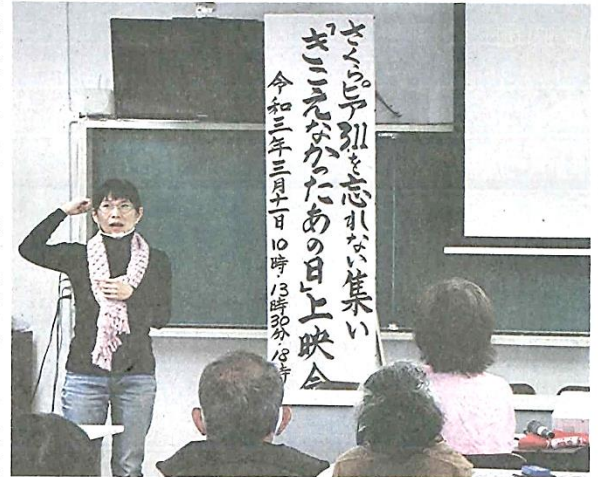 さくらピア3.11を忘れない集い
「きこえなかったあの日」上映会
令和三年三月十一日 10時・13時30分・18時